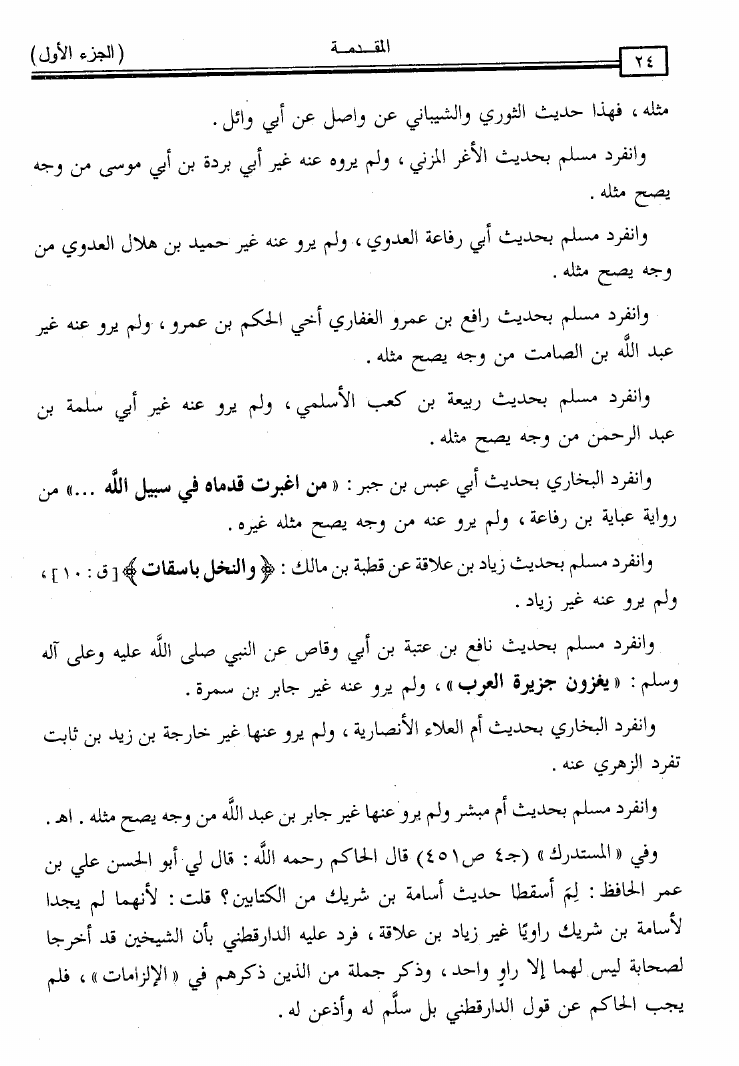 ٢٤ المقدمة (الجزء الأول)
مثله ، فهذا حديث الثوري والشيباني عن واصل عن أبي وائل .
وانفرد مسلم بحديث الأغر المزني ، ولم يروه عنه غير أبي بردة بن أبي موسى من وجه
يصح مثله .
وانفرد مسلم بحديث أبي رفاعة العدوي ، ولم يرو عنه غير حميد بن هلال العدوي من
وجه يصح مثله .
وانفرد مسلم بحديث رافع بن عمرو الغفاري أخي الحكم بن عمرو ، ولم يرو عنه غير
عبد اللَّه بن الصامت من وجه يصح مثله .
وانفرد مسلم بحديث ربيعة بن كعب الأسلمي ، ولم يرو عنه غير أبي سلمة بن
عبد الرحمن من وجه يصح مثله .
وانفرد البخاري بحديث أبي عبس بن جبر : « من اغبرت قدماه في سبيل اللَّه ... » من
رواية عباية بن رفاعة ، ولم يرو عنه من وجه يصح مثله غيره .
وانفرد مسلم بحديث زياد بن علاقة عن قطبة بن مالك : ﴿ والنخل باسقات ﴾ [ ق : ١٠ ] ،
ولم يرو عنه غير زياد .
وانفرد مسلم بحديث نافع بن عتبة بن أبي وقاص عن النبي صلى اللَّه عليه وعلى آله
وسلم : « يغزون جزيرة العرب » ، ولم يرو عنه غير جابر بن سمرة .
وانفرد البخاري بحديث أم العلاء الأنصارية ، ولم يرو عنها غير خارجة بن زيد بن ثابت
تفرد الزهري عنه .
وانفرد مسلم بحديث أم مبشر ولم يرو عنها غير جابر بن عبد اللَّه من وجه يصح مثله . اهـ .
وفي « المستدرك » (جـ٤ ص٤٥١) قال الحاكم رحمه اللَّه : قال لي أبو الحسن علي بن
عمر الحافظ : لِمَ أسقطا حديث أسامة بن شريك من الكتابين ؟ قلت : لأنهما لم يجدا
لأسامة بن شريك راويًا غير زياد بن علاقة ، فرد عليه الدارقطني بأن الشيخين قد أخرجا
لصحابة ليس لهما إلا راوٍ واحد ، وذكر جملة من الذين ذكرهم في « الإلزامات » ، فلم
يجب الحاكم عن قول الدارقطني بل سلَّم له وأذعن له .